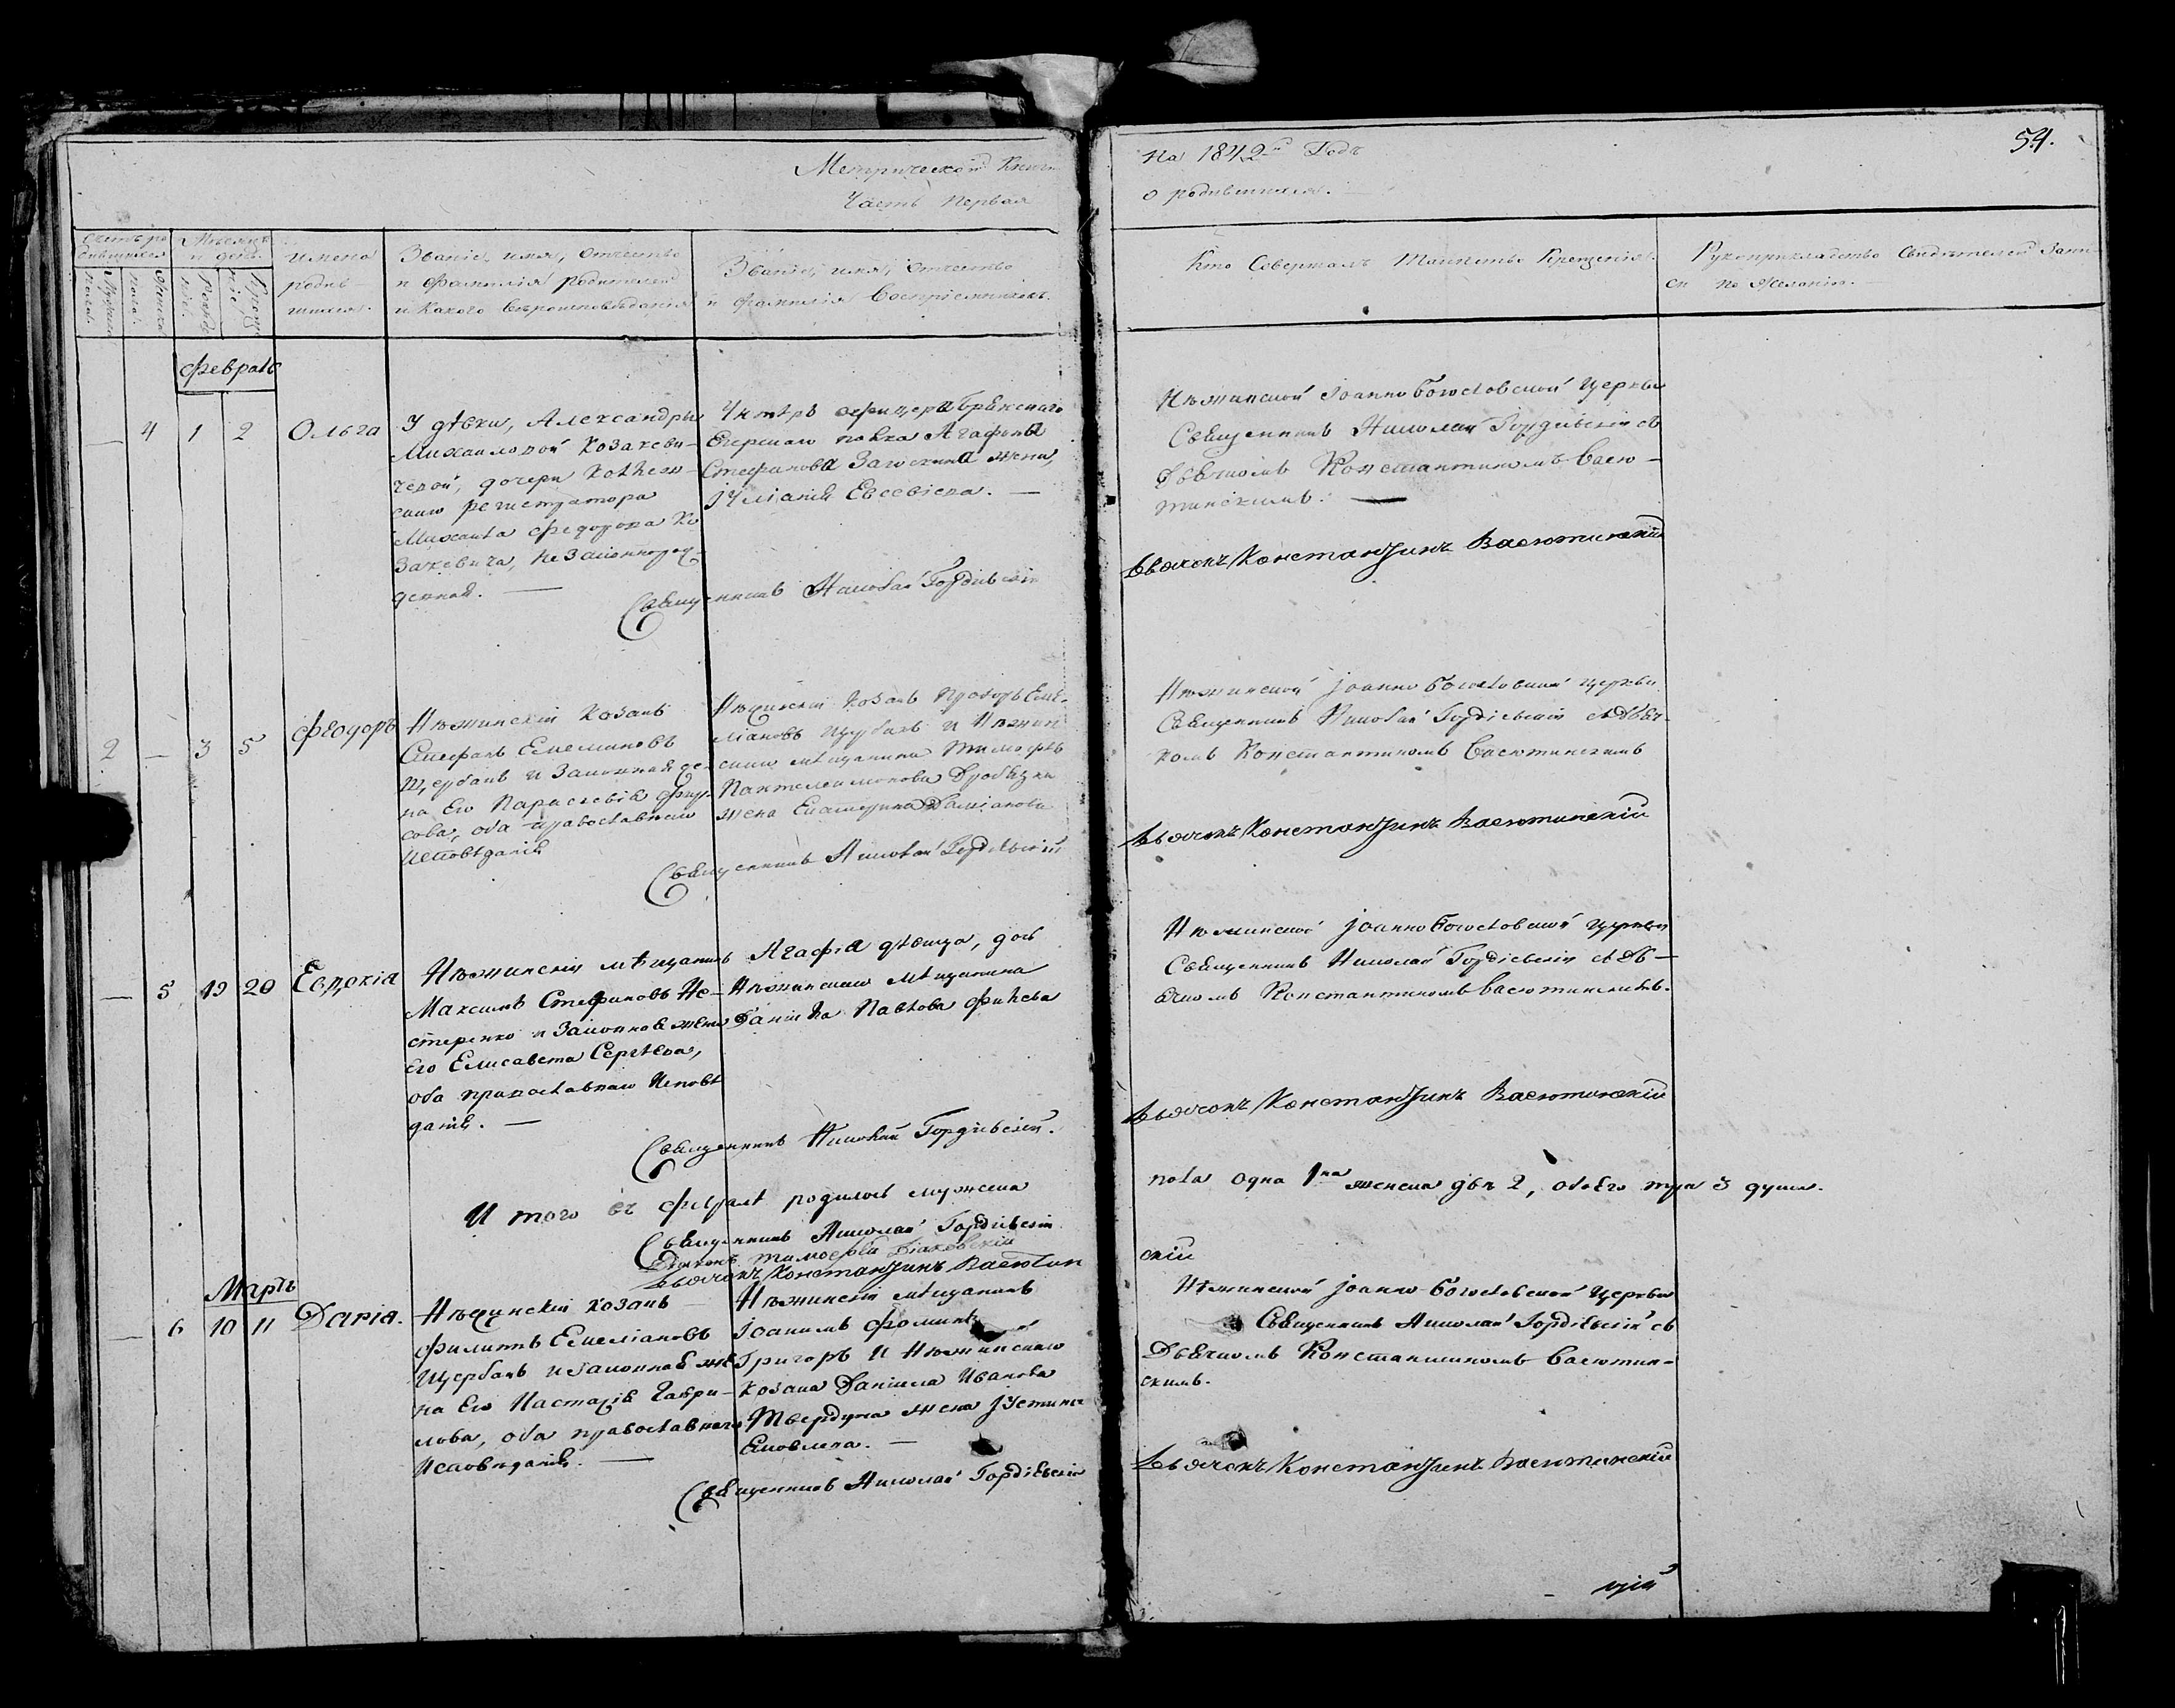 Метрической Книги
Часть первая
На 1842й Годъ
о родившихся.
54.
Счетъ ро
дившихся
Мужеска
пола.
Женска
пола.
Мѣсяцъ
и день.
Рожде
ніе.
Креще
ніе.
имена
родив-
шихся.
Званіе, имя, отчество
и фамилія родителей
и какого вѣроисповѣданія
Званіе, имя, отчество
и фамилія воспріемниковъ.
Кто совершалъ таинство крещенія.
Рукоприкладство свидѣтелей запи-
си по желанію.
февраль
— 4 1 2 Ольга
У дѣвки, Александры
Михайловой Козакеви-
чевой, дочери коллеж-
скаго регистратора
Михаила Федорова Ко
закевича, незаконнорож-
денная. —
Унтеръ офицера Брянскаго
Егерскаго полка Агафона
Стефанова жена,
Іуліанія Евсевіева. —
Священникъ Николай Гордіевскій
Нѣжинской Іоанно Богословской церкви
Священникъ Николай Гордіевскій съ
Дьячкомъ Константиномъ Васю-
тинскимъ. —
Дьячокъ Константинъ Васютинскій
2 — 3 5 Феодоръ
Нѣжинскій козакъ
Стефанъ Емеліановъ
Щербакъ и законная же-
на Его Параскевія
сова, оба православнаго
исповѣданія
Нѣжинскій козакъ Еме-
ліановъ Щербакъ и Нѣжин
скаго мѣщанина Тимофѣя
Пантелеимонова
жена Екатерина Даміанова
Священникъ Николай Гордіевскій
Нѣжинской Іоанно Богословской церкви
Священникъ Николай Гордіевскій съ Дьяч-
комъ Константиномъ Васютинскимъ
Дьячокъ Константинъ Васютинскій
— 5 19 20 Евдокія
Нѣжинскій мѣщанинъ
Максимъ Стефановъ Не-
стеренко и законная жена
Его Елисавета Сергѣева,
оба православнаго исповѣ
данія. —
Агафія дѣвица, дочь
Нѣжинскаго мѣщанина
Даніила Павлова
Священникъ Николай Гордіевскій.
Нѣжинской Іоанно Богословской церкви
Священникъ Николай Гордіевскій съ Дь-
ячкомъ Константиномъ Васютинскимъ.
Дьячокъ Константинъ Васютинскій
И того въ февралѣ родилось мужеска
пола одна 1на женска двѣ 2, обоего 3 души.
Священникъ Николай Гордіевскій
Діаконъ Тимофей
Дьячокъ Константинъ Васютин
скій
Мартъ
— 6 10 11 Дарія.
Нѣжинскій козакъ
Филиппъ Емеліановъ
Щербакъ и законная же
на Его Настасія Гаври-
лова, оба православнаго
исповѣданія. —
Нѣжинскій мѣщанинъ
Іоакимъ Фоминъ
Григоръ и Нѣжинскаго
козака Даніила Иванова
жена Іустина
Яковлева. —
Священникъ Николай Гордіевскій
Нѣжинской Іоанно Богословской церкви
Священникъ Николай Гордіевскій съ
Дьячкомъ Константиномъ Васютин-
скимъ.
Дьячокъ Константинъ Васютинскій